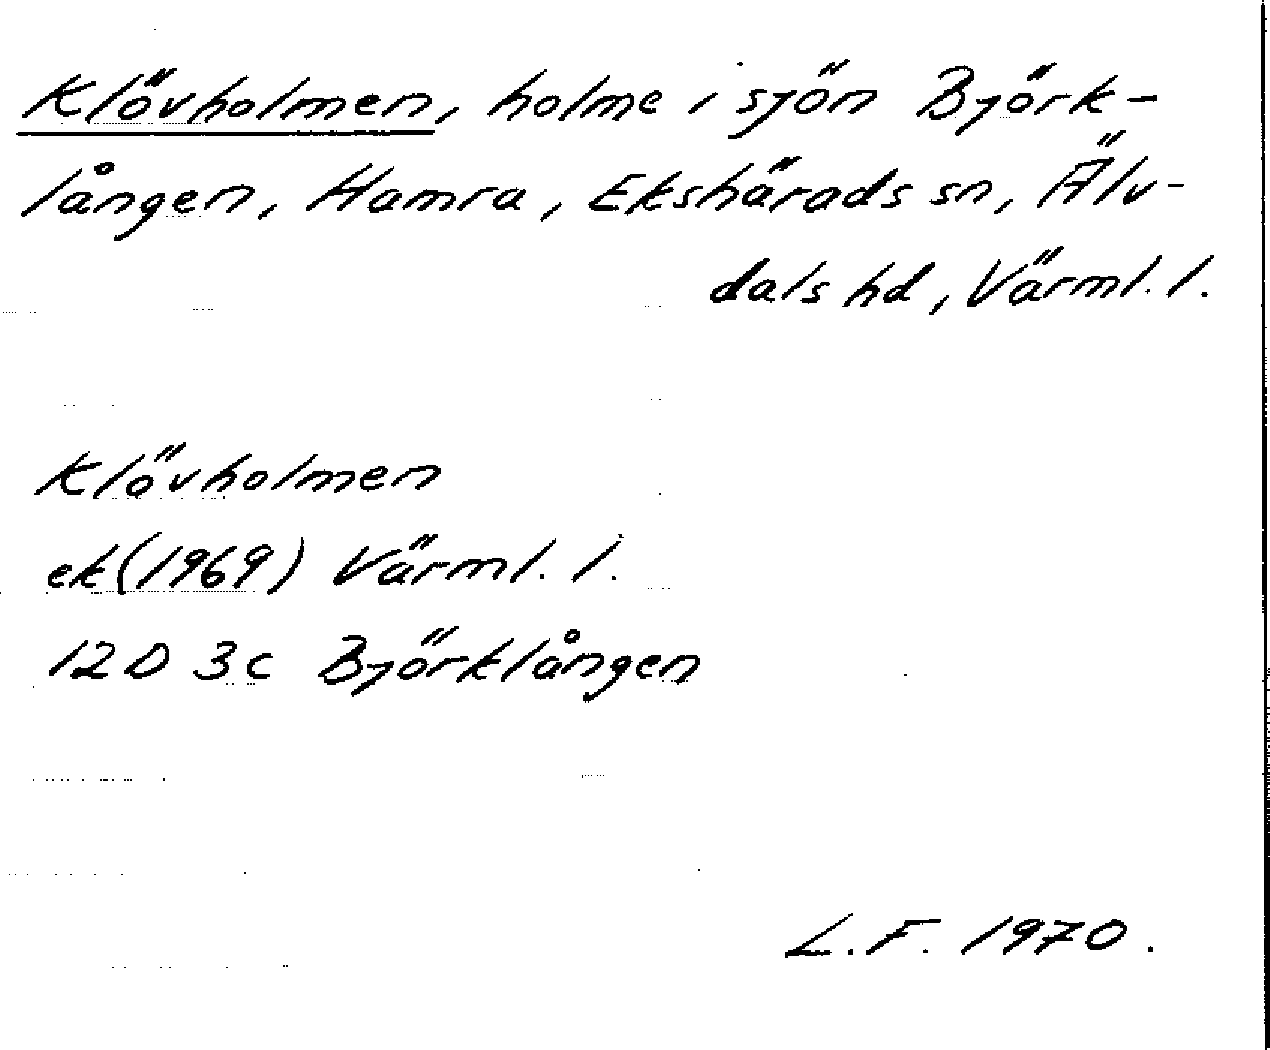 Klövholmen, holme i sjön Björk-
lången, Hamra, Ekshärads sn, Älv-
dals hd, Värml. l.
Klövholmen
ek (1969) Värml. l.
12D 3c Björklången
L.F. 1970.